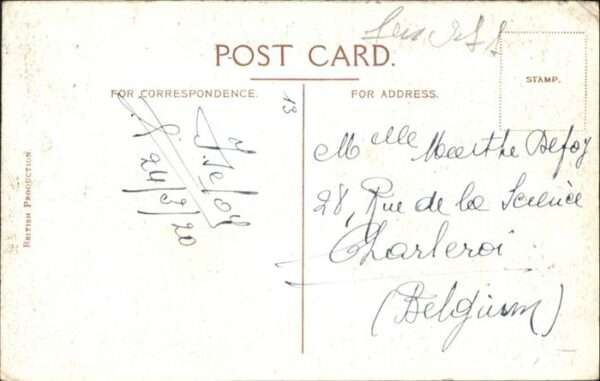 POST CARD.
STAMP.
FOR CORRESPONDENCE.
FOR ADDRESS.
13
24/3/20
Mlle Marthe Defoy
28, Rue de la Science
Charleroi
(Belgium)
BRITISH PRODUCTION